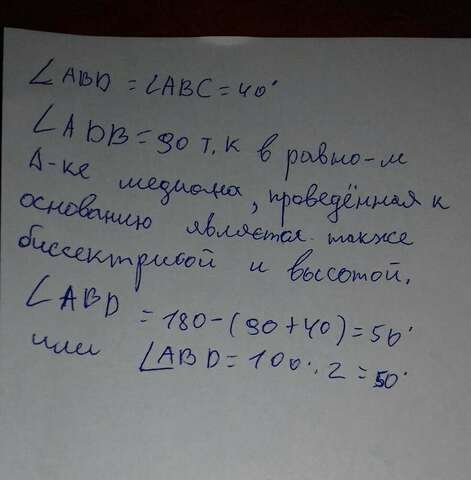 ∠ABD = ∠ABC = 40°
∠ADB = 90 т.к в равно-м
Δ-ке медиана, проведённая к
основанию является также
биссектрисой и высотой.
∠ABD = 180-(90+40)=50°
или ∠ABD = 100:2=50°